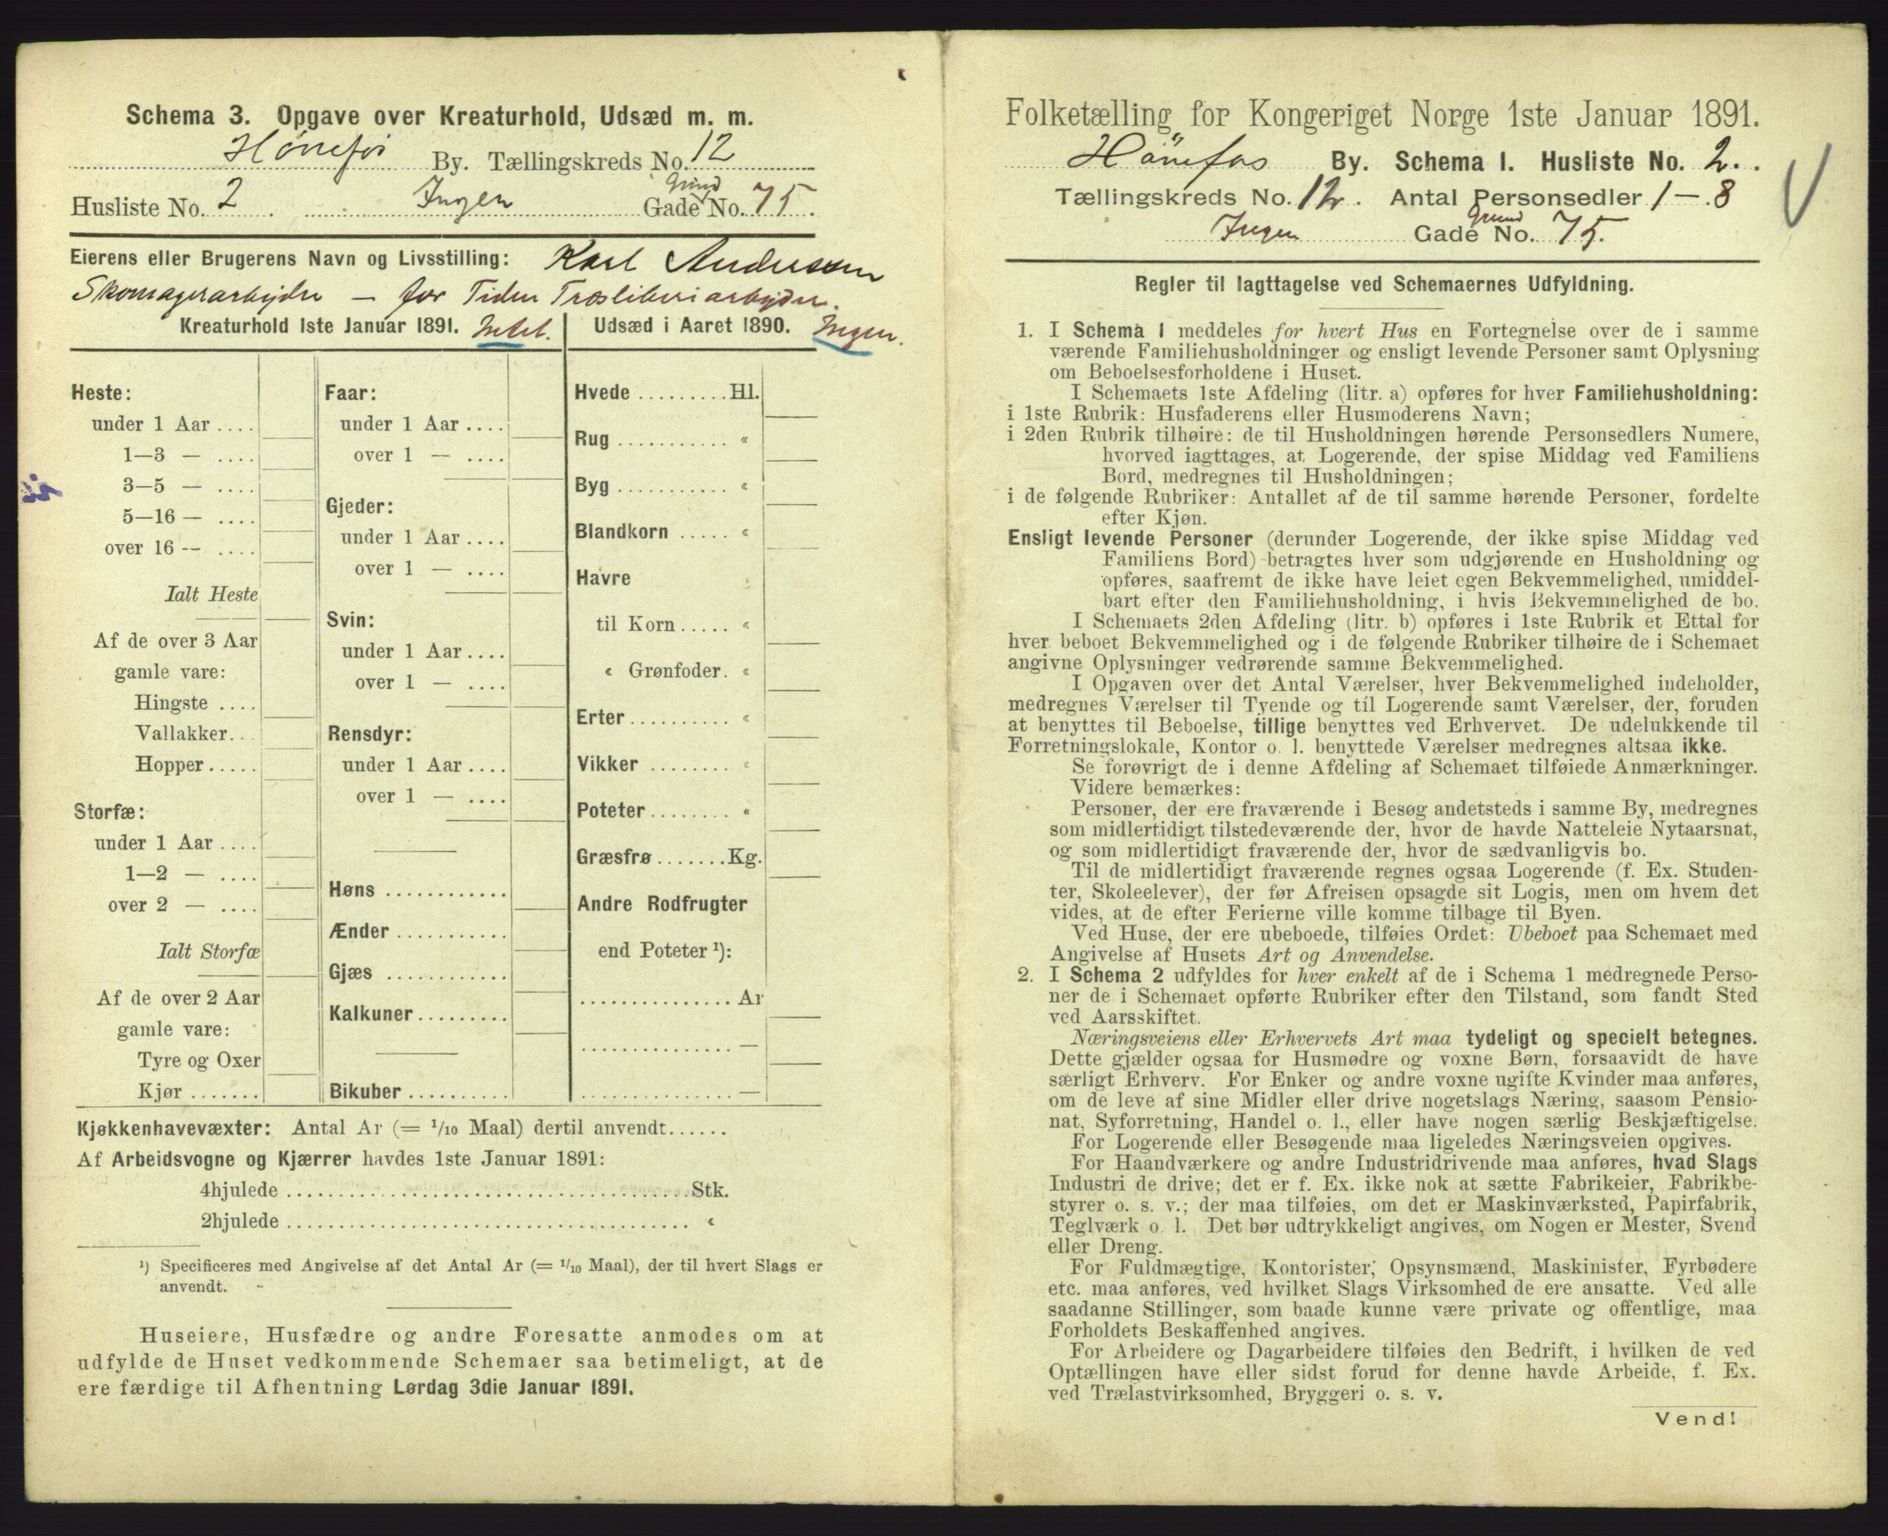 Schema 3. Opgave over Kreaturhold, Udsæd m. m.
Hønefos By. Tællingskreds No. 12
Husliste No. 2 Ingen Gade No. Grund 75.
Eierens eller Brugerens Navn og Livsstilling: Karl Andersen
Skomagerarbejder — for Tiden Træsliberiarbejder.
Kreaturhold 1ste Januar 1891. Intet.
Heste:
under 1 Aar ....
1—3 — ....
3—5 — ....
5—16 — ....
over 16 — ....
Ialt Heste
Af de over 3 Aar
gamle vare:
Hingste ....
Vallakker...
Hopper.....
Storfæ:
under 1 Aar ....
1—2 — ....
over 2 — ....
Ialt Storfæ
Af de over 2 Aar
gamle vare:
Tyre og Oxer
Kjør .......
Faar:
under 1 Aar ....
over 1 — ....
Gjeder:
under 1 Aar ....
over 1 — ....
Svin:
under 1 Aar ....
over 1 — ....
Rensdyr:
under 1 Aar ....
over 1 — ....
Høns ............
Ænder ...........
Gjæs ............
Kalkuner.........
Bikuber ..........
Udsæd i Aaret 1890. Ingen.
Hvede .........Hl.
Rug ........... «
Byg ........... «
Blandkorn ..... «
Havre
til Korn..... «
« Grønfoder. «
Erter .......... «
Vikker ........ «
Poteter ........ «
Græsfrø .......Kg.
Andre Rodfrugter
end Poteter ¹):
............... Ar
............... —
............... —
Kjøkkenhavevæxter: Antal Ar (= 1/10 Maal) dertil anvendt......
Af Arbeidsvogne og Kjærrer havdes 1ste Januar 1891:
4hjulede ........................................Stk.
2hjulede ........................................ «
¹) Specificeres med Angivelse af det Antal Ar (= 1/10 Maal), der til hvert Slags er
anvendt.
Huseiere, Husfædre og andre Foresatte anmodes om at
udfylde de Huset vedkommende Schemaer saa betimeligt, at de
ere færdige til Afhentning Lørdag 3die Januar 1891.
Folketælling for Kongeriget Norge 1ste Januar 1891.
Hönefos By. Schema I. Husliste No. 2.
Tællingskreds No. 12. Antal Personsedler 1—8
Ingen Gade No. Grund 75.
Regler til Iagttagelse ved Schemaernes Udfyldning.
1. I Schema 1 meddeles for hvert Hus en Fortegnelse over de i samme
værende Familiehusholdninger og ensligt levende Personer samt Oplysning
om Beboelsesforholdene i Huset.
I Schemaets 1ste Afdeling (litr. a) opføres for hver Familiehusholdning:
i 1ste Rubrik: Husfaderens eller Husmoderens Navn;
i 2den Rubrik tilhøire: de til Husholdningen hørende Personsedlers Numere,
hvorved iagttages, at Logerende, der spise Middag ved Familiens
Bord, medregnes til Husholdningen;
i de følgende Rubriker: Antallet af de til samme hørende Personer, fordelte
efter Kjøn.
Ensligt levende Personer (derunder Logerende, der ikke spise Middag ved
Familiens Bord) betragtes hver som udgjørende en Husholdning og
opføres, saafremt de ikke have leiet egen Bekvemmelighed, umiddel-
bart efter den Familiehusholdning, i hvis Bekvemmelighed de bo.
I Schemaets 2den Afdeling (litr. b) opføres i 1ste Rubrik et Ettal for
hver beboet Bekvemmelighed og i de følgende Rubriker tilhøire de i Schemaet
angivne Oplysninger vedrørende samme Bekvemmelighed.
I Opgaven over det Antal Værelser, hver Bekvemmelighed indeholder,
medregnes Værelser til Tyende og til Logerende samt Værelser, der, foruden
at benyttes til Beboelse, tillige benyttes ved Erhvervet. De udelukkende til
Forretningslokale, Kontor o. l. benyttede Værelser medregnes altsaa ikke.
Se forøvrigt de i denne Afdeling af Schemaet tilføiede Anmærkninger.
Videre bemærkes:
Personer, der ere fraværende i Besøg andetsteds i samme By, medregnes
som midlertidigt tilstedeværende der, hvor de havde Natteleie Nytaarsnat,
og som midlertidigt fraværende der, hvor de sædvanligvis bo.
Til de midlertidigt fraværende regnes ogsaa Logerende (f. Ex. Studen-
ter, Skoleelever), der før Afreisen opsagde sit Logis, men om hvem det
vides, at de efter Ferierne ville komme tilbage til Byen.
Ved Huse, der ere ubeboede, tilføies Ordet: Ubeboet paa Schemaet med
Angivelse af Husets Art og Anvendelse.
2. I Schema 2 udfyldes for hver enkelt af de i Schema 1 medregnede Perso-
ner de i Schemaet opførte Rubriker efter den Tilstand, som fandt Sted
ved Aarsskiftet.
Næringsveiens eller Erhvervets Art maa tydeligt og specielt betegnes.
Dette gjælder ogsaa for Husmødre og voxne Børn, forsaavidt de have
særligt Erhverv. For Enker og andre voxne ugifte Kvinder maa anføres,
om de leve af sine Midler eller drive nogetslags Næring, saasom Pensio-
nat, Syforretning, Handel o. l., eller have nogen særlig Beskjæftigelse.
For Logerende eller Besøgende maa ligeledes Næringsveien opgives.
For Haandværkere og andre Industridrivende maa anføres, hvad Slags
Industri de drive; det er f. Ex. ikke nok at sætte Fabrikeier, Fabrikbe-
styrer o. s. v.; der maa tilføies, om det er Maskinværksted, Papirfabrik,
Teglværk o. l. Det bør udtrykkeligt angives, om Nogen er Mester, Svend
eller Dreng.
For Fuldmægtige, Kontorister, Opsynsmænd, Maskinister, Fyrbødere
etc. maa anføres, ved hvilket Slags Virksomhed de ere ansatte. Ved alle
saadanne Stillinger, som baade kunne være private og offentlige, maa
Forholdets Beskaffenhed angives.
For Arbeidere og Dagarbeidere tilføies den Bedrift, i hvilken de ved
Optællingen have eller sidst forud for denne havde Arbeide, f. Ex.
ved Trælastvirksomhed, Bryggeri o. s. v.
Vend!